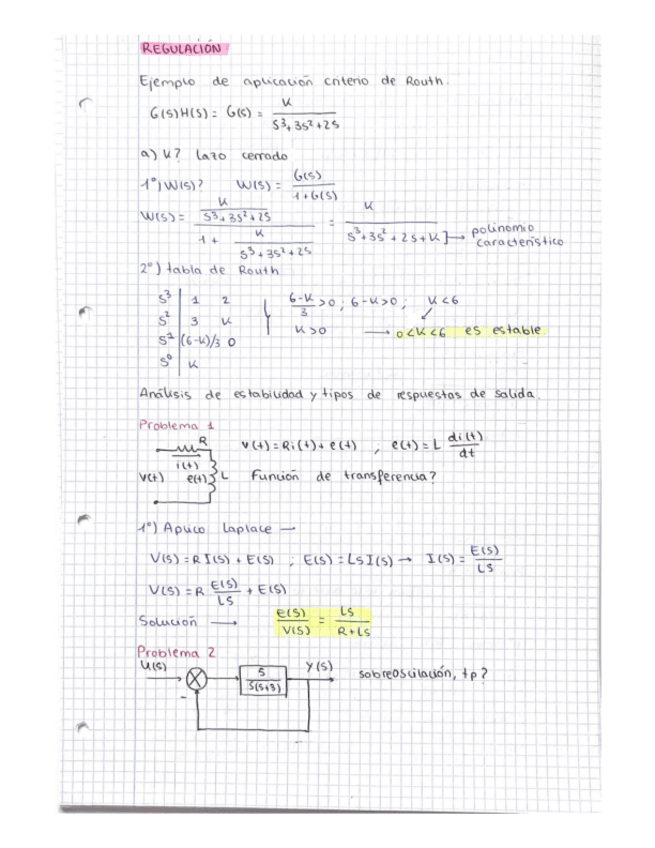 REGULACIÓN
Ejemplo de aplicación criterio de Routh.
G(s)H(s) = G(s) = K / (s³ + 3s² + 2s)
a) K? Lazo cerrado
1º) W(s)? W(s) = G(s) / (1 + G(s))
W(s) = (K / (s³ + 3s² + 2s)) / (1 + K / (s³ + 3s² + 2s)) = K / (s³ + 3s² + 2s + K) → polinomio característico
2º) tabla de Routh
s³ | 1 2
s² | 3 K
s¹ | (6-K)/3 0
s⁰ | K
(6-K)/3 > 0 ; 6-K > 0 ; K < 6
K > 0 → 0 < K < 6 es estable
Análisis de estabilidad y tipos de respuestas de salida.
Problema 1
R
i(t)
V(t) e(t) L
V(t) = Ri(t) + e(t) , e(t) = L di(t)/dt
Función de transferencia?
1º) Aplico Laplace →
V(s) = R I(s) + E(s) ; E(s) = LsI(s) → I(s) = E(s)/Ls
V(s) = R E(s)/Ls + E(s)
Solución → E(s)/V(s) = Ls/(R + Ls)
Problema 2
U(s) - 5/(s(s+3)) Y(s) sobreoscilación, tp?